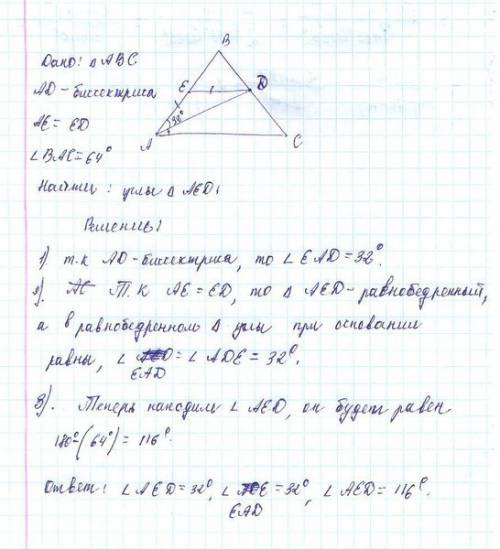 Дано: △ ABC
AD - биссектриса
AE = ED
∠ BAC = 64°
B
E
D
A
C
Найти: углы △ AED.
Решение:
1) т.к AD - биссектриса, то ∠ EAD = 32°.
2). Т.К AE = ED, то △ AED - равнобедренный,
а в равнобедренном △ углы при основании
равны, ∠ EAD = ∠ ADE = 32°.
3). Теперь находим ∠ AED, он будет равен
180°-(64°) = 116°.
Ответ: ∠ AED = 32°, ∠ EAD = 32°, ∠ AED = 116°.